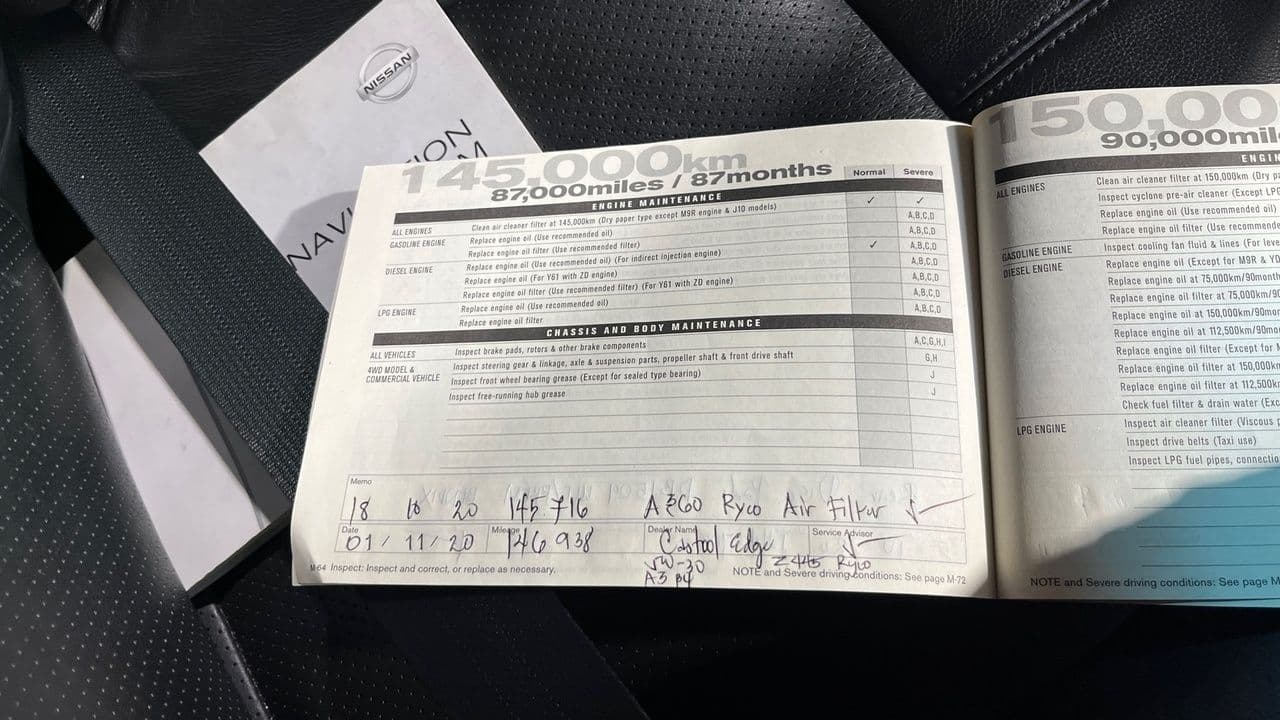 NISSAN
NAVI
TION
M
145,000km
87,000miles / 87months
Normal Severe
ENGINE MAINTENANCE
ALL ENGINES Clean air cleaner filter at 145,000km (Dry paper type except M9R engine & J10 models) ✓ ✓
GASOLINE ENGINE Replace engine oil (Use recommended oil) A,B,C,D
Replace engine oil filter (Use recommended filter) A,B,C,D
DIESEL ENGINE Replace engine oil (Use recommended oil) (For indirect injection engine) ✓ A,B,C,D
Replace engine oil (For Y61 with ZD engine) A,B,C,D
Replace engine oil filter (Use recommended filter) (For Y61 with ZD engine) A,B,C,D
LPG ENGINE Replace engine oil (Use recommended oil) A,B,C,D
Replace engine oil filter A,B,C,D
CHASSIS AND BODY MAINTENANCE
ALL VEHICLES Inspect brake pads, rotors & other brake components A,C,G,H,I
4WD MODEL & COMMERCIAL VEHICLE Inspect steering gear & linkage, axle & suspension parts, propeller shaft & front drive shaft G,H
Inspect front wheel bearing grease (Except for sealed type bearing) J
Inspect free-running hub grease J
Memo
18 10 20 145 716 A360 Ryco Air Filter ✓
Date Mileage Dealer Name Service Advisor
01/ 11/ 20 146 938 Castool Edge ✓
5W-30 Z445 Ryco
A3 B4
M-64 Inspect: Inspect and correct, or replace as necessary. NOTE and Severe driving conditions: See page M-72
150,00
90,000mil
ENGIN
ALL ENGINES Clean air cleaner filter at 150,000km (Dry p
Inspect cyclone pre-air cleaner (Except LP
GASOLINE ENGINE Replace engine oil (Use recommended oil)
Replace engine oil filter (Use recommende
DIESEL ENGINE Inspect cooling fan fluid & lines (For leve
Replace engine oil (Except for M9R & YD
Replace engine oil at 75,000km/90month
Replace engine oil filter at 75,000km/90
Replace engine oil at 150,000km/90mon
Replace engine oil at 112,500km/90mon
Replace engine oil filter (Except for M
Replace engine oil filter at 150,000
Replace engine oil filter at 112,500k
Check fuel filter & drain water (Exc
LPG ENGINE Inspect air cleaner filter (Viscous p
Inspect drive belts (Taxi use)
Inspect LPG fuel pipes, connectio
NOTE and Severe driving conditions: See page M